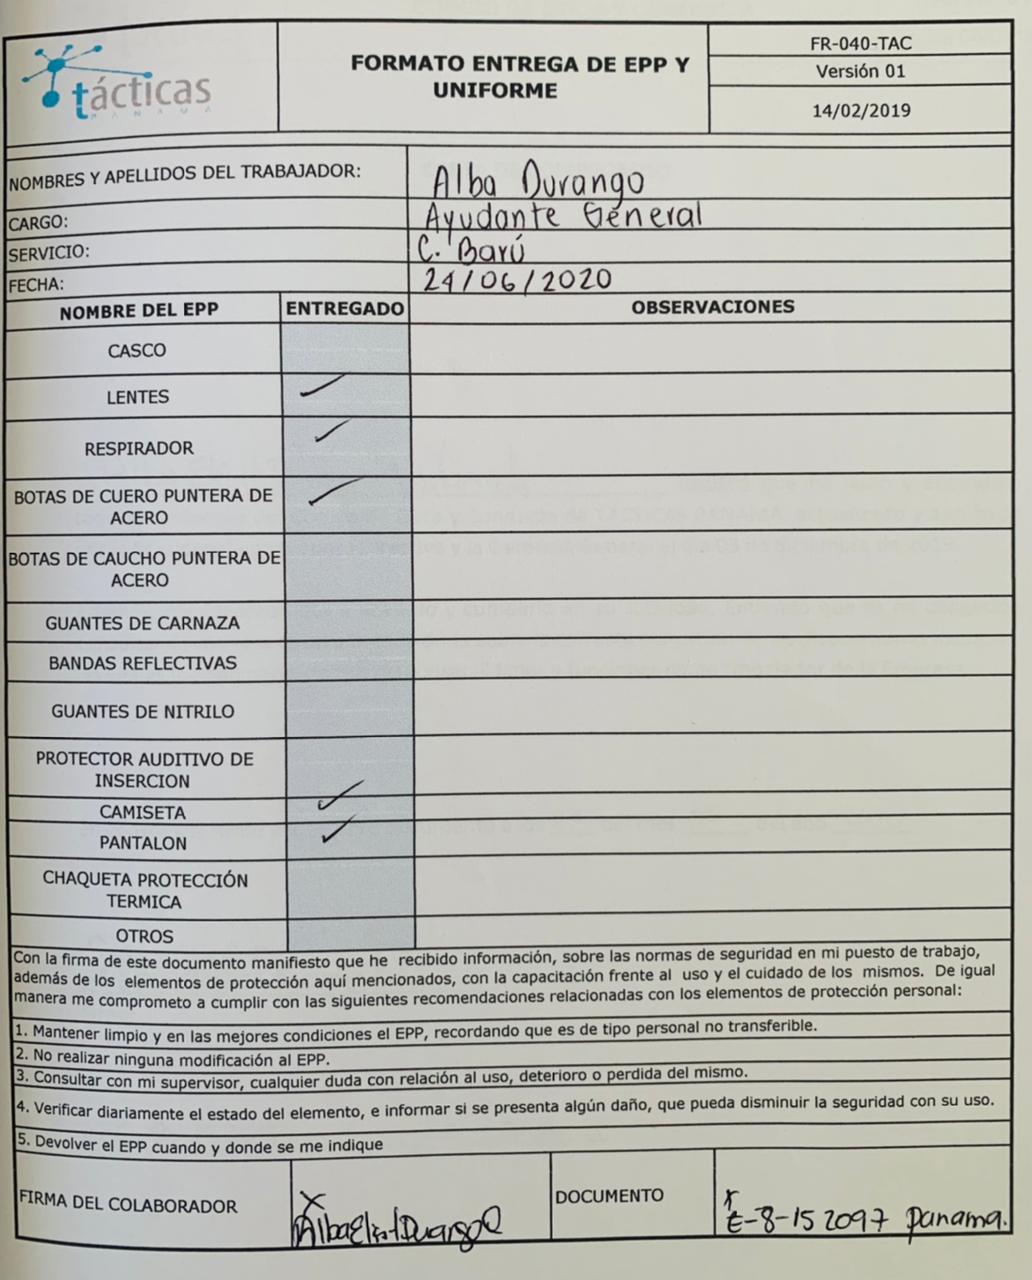 tácticas
PANAMÁ
FORMATO ENTREGA DE EPP Y
UNIFORME
FR-040-TAC
Versión 01
14/02/2019
NOMBRES Y APELLIDOS DEL TRABAJADOR: Alba Durango
CARGO: Ayudante General
SERVICIO: C. Barú
FECHA: 24/06/2020
NOMBRE DEL EPP ENTREGADO OBSERVACIONES
CASCO
LENTES ✓
RESPIRADOR ✓
BOTAS DE CUERO PUNTERA DE
ACERO ✓
BOTAS DE CAUCHO PUNTERA DE
ACERO
GUANTES DE CARNAZA
BANDAS REFLECTIVAS
GUANTES DE NITRILO
PROTECTOR AUDITIVO DE
INSERCION
CAMISETA ✓
PANTALON ✓
CHAQUETA PROTECCIÓN
TERMICA
OTROS
Con la firma de este documento manifiesto que he recibido información, sobre las normas de seguridad en mi puesto de trabajo,
además de los elementos de protección aquí mencionados, con la capacitación frente al uso y el cuidado de los mismos. De igual
manera me comprometo a cumplir con las siguientes recomendaciones relacionadas con los elementos de protección personal:
1. Mantener limpio y en las mejores condiciones el EPP, recordando que es de tipo personal no transferible.
2. No realizar ninguna modificación al EPP.
3. Consultar con mi supervisor, cualquier duda con relación al uso, deterioro o perdida del mismo.
4. Verificar diariamente el estado del elemento, e informar si se presenta algún daño, que pueda disminuir la seguridad con su uso.
5. Devolver el EPP cuando y donde se me indique
FIRMA DEL COLABORADOR
X
DOCUMENTO
E-8-152097 Panama.